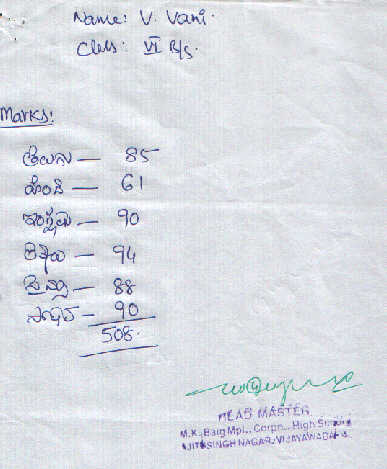 Name: V. Vani.
Class: VI B/s.
Marks:
తెలుగు — 85
హిందీ — 61
ఇంగ్లీషు — 90
లెక్కలు — 94
సైన్సు — 88
సోషల్ — 90
508.
HEAD MASTER
M.K. Baig Mpl., Corpn., High School
AJITSINGH NAGAR, VIJAYAWADA